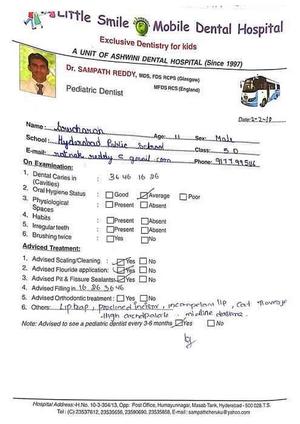 Little Smile Mobile Dental Hospital
Exclusive Dentistry for kids
A UNIT OF ASHWINI DENTAL HOSPITAL (Since 1997)
Dr. SAMPATH REDDY, MDS, FDS RCPS (Glasgow)
MFDS RCS (England)
Pediatric Dentist
Date: 2-2-10
Name: Age: 11 Sex: Male
School: Hyderabad Public School Class: 5 D
E-mail: reddy @ gmail.com Phone:
On Examination:
1. Dental Caries in (Cavities) 36 46 16 26
2. Oral Hygiene Status : Good Average Poor
3. Physiological Spaces : Present Absent
4. Habits : Present Absent
5. Irregular teeth : Present Absent
6. Brushing twice : Yes No
Adviced Treatment:
1. Advised Scaling/Cleaning : Yes No
2. Advised Flouride application: Yes No
3. Advised Pit & Fissure Sealants: Yes No
4. Advised Filling in 16 26 36 46
5. Advised Orthodontic treatment : Yes No
6. Others: Lip trap, proclined incisor, incompetent lip,
High arched palate - midline diastema.
Note: Advised to see a pediatric dentist every 3-6 months Yes No
Hospital Address:-H.No. 10-3-304/13, Opp: Post Office, Humayunnagar, Masab Tank, Hyderabad - 500 028 T.S.
Tel : (C) 23537612, 23535656, 23590690, 23535858, E-mail : sampathcheruku@yahoo.com